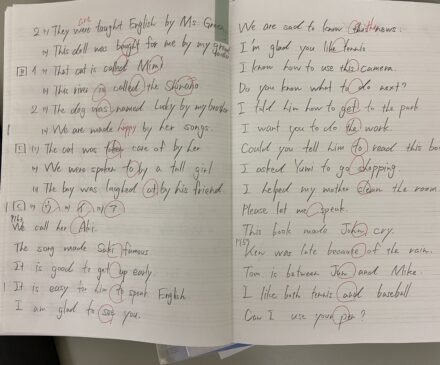 are
2 1) They were taught English by Ms. Green
2) This doll was bought for me by my grand
B 1 1) That cat is called Mimi
2) This river is called the Shinano
2 1) The dog was named Lucky by my brother
2) We are made happy by her songs.
C 1) The cat was taken care of by her
2) We were spoken to by a tall girl
3) The boy was laughed at by his friend
We call her Aki.
The song made Saki famous
It is good to get up early
It is easy to him to speak English
I am glad to see you.
We are sad to know the news.
I'm glad you like tennis
I know how to use this camera.
Do you know what to do next?
I told him how to get to the park
I want you to do the work.
Could you tell him to read this
I asked Yumi to go shopping
I helped my mother clean the room
Please let me speak.
This book made John cry.
Ken was late because of the rain.
Tom is between Jun and Mike.
I like both tennis and baseball
Can I use your pen?